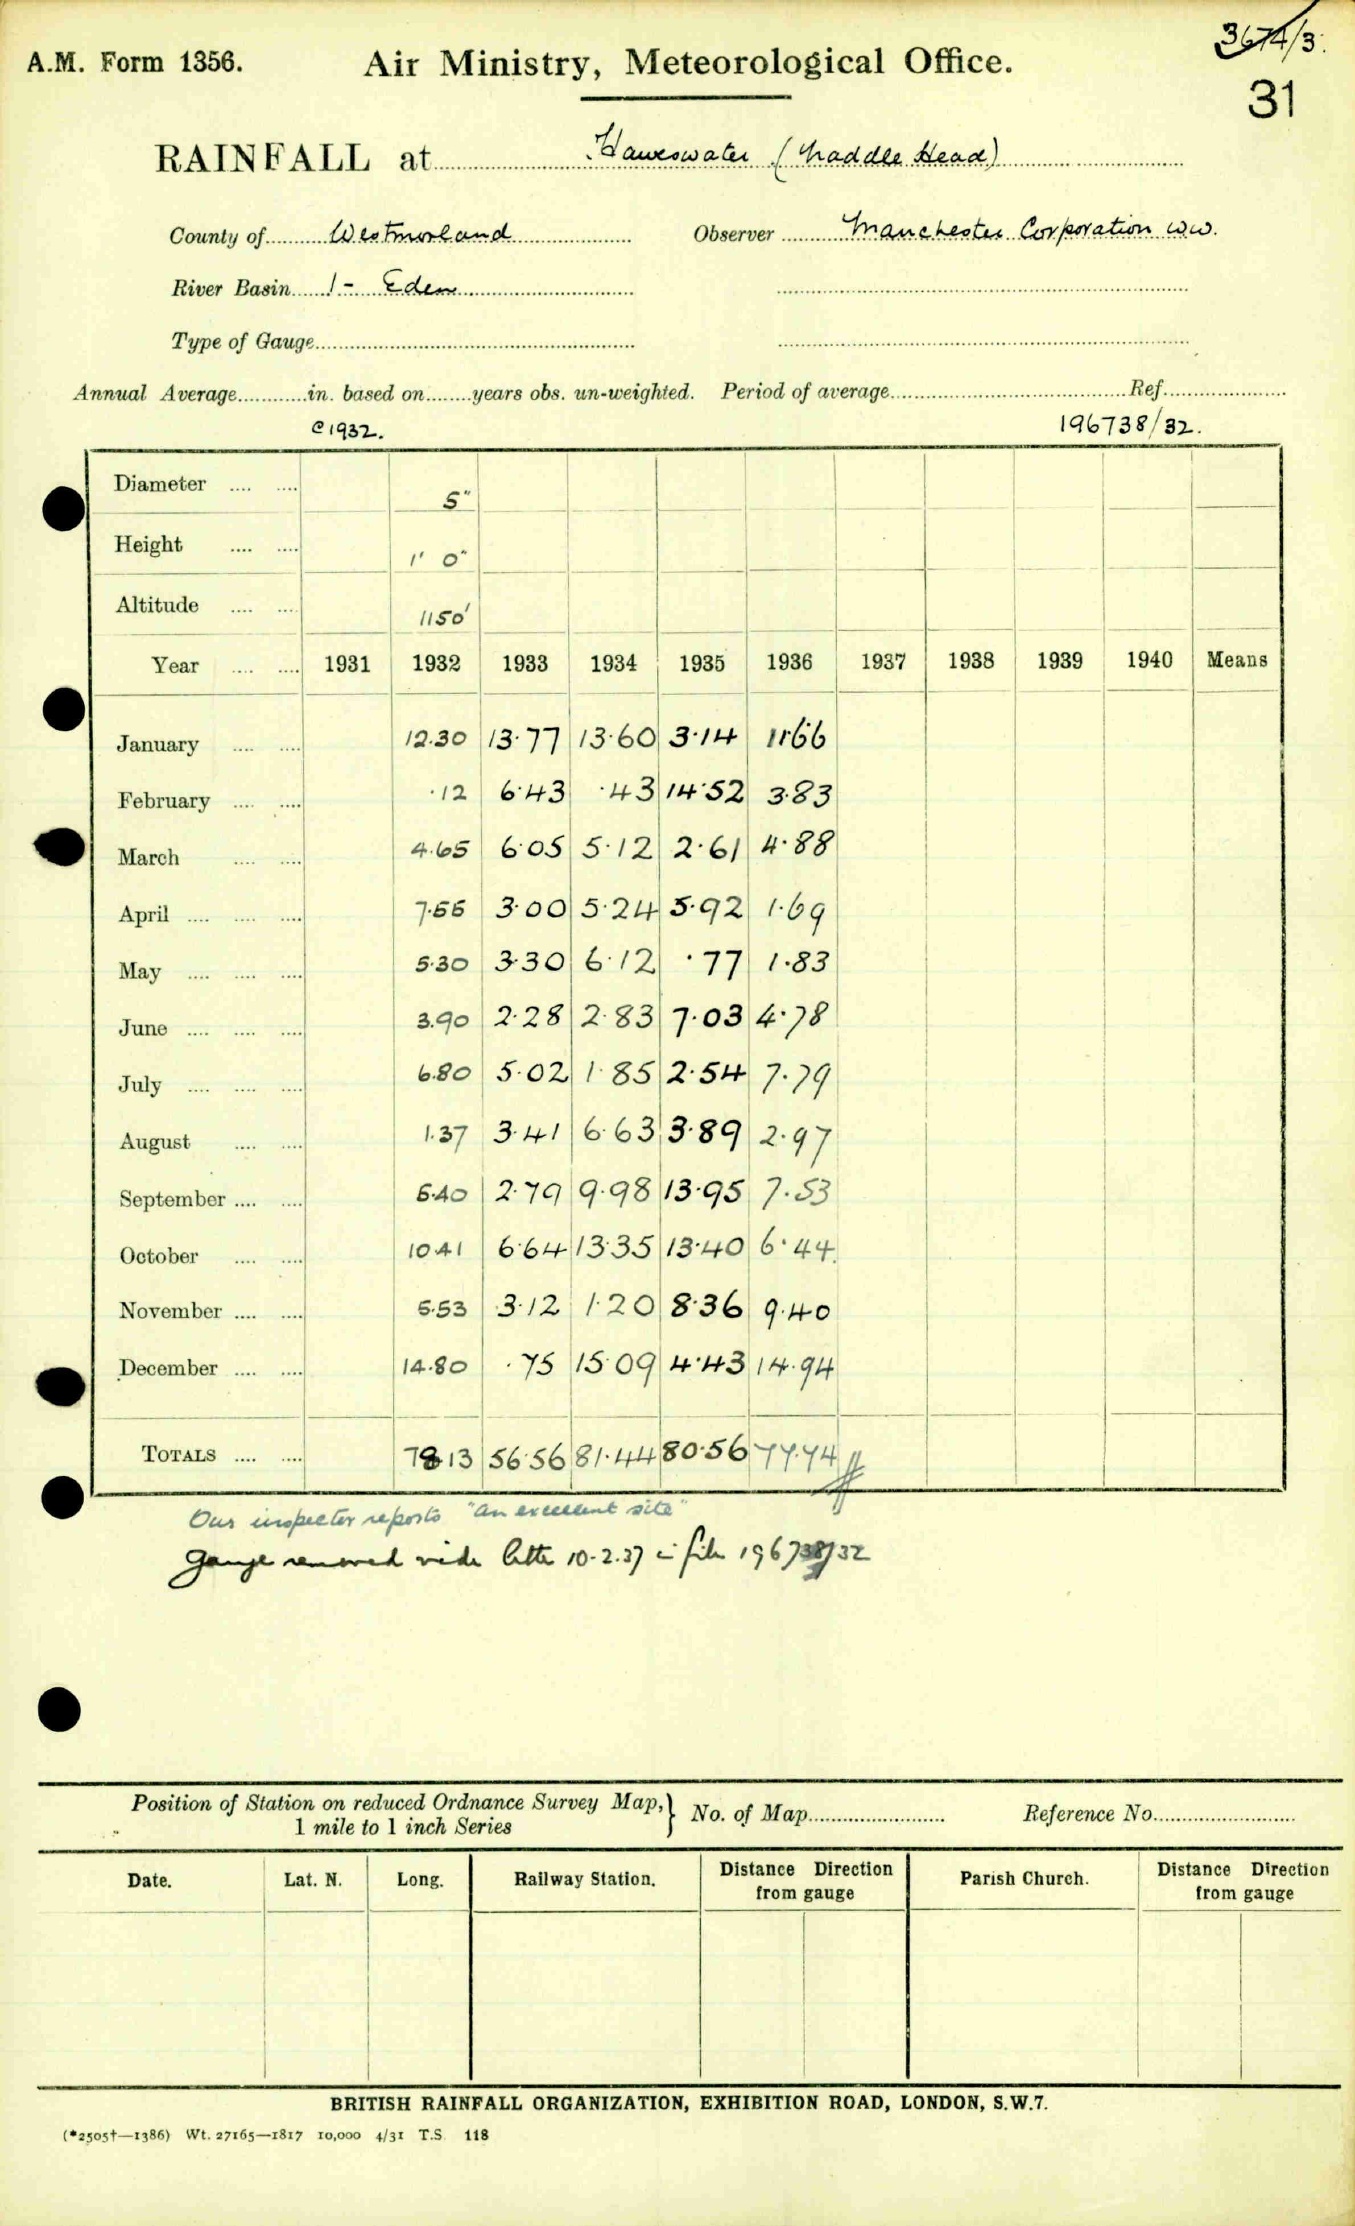 3674/3.
A.M. Form 1356. Air Ministry, Meteorological Office.
31
RAINFALL at Haweswater (Naddle Head)
County of Westmorland Observer Manchester Corporation W.W.
River Basin 1 - Eden
Type of Gauge
Annual Average in. based on years obs. un-weighted. Period of average Ref.
c1932. 196738/32.
Diameter 5"
Height 1' 0"
Altitude 1150'
Year 1931 1932 1933 1934 1935 1936 1937 1938 1939 1940 Means
January 12.30 13.77 13.60 3.14 11.66
February .12 6.43 .43 14.52 3.83
March 4.65 6.05 5.12 2.61 4.88
April 7.55 3.00 5.24 5.92 1.69
May 5.30 3.30 6.12 .77 1.83
June 3.90 2.28 2.83 7.03 4.78
July 6.80 5.02 1.85 2.54 7.79
August 1.37 3.41 6.63 3.89 2.97
September 5.40 2.79 9.98 13.95 7.53
October 10.41 6.64 13.35 13.40 6.44
November 5.53 3.12 1.20 8.36 9.40
December 14.80 .75 15.09 4.43 14.94
TOTALS 78.13 56.56 81.44 80.56 77.74
Our inspector reports "an excellent site"
Gauge removed vide letter 10.2.37 in file 196738/32
Position of Station on reduced Ordnance Survey Map, } No. of Map Reference No.
1 mile to 1 inch Series
Date. Lat. N. Long. Railway Station. Distance Direction from gauge Parish Church. Distance Direction from gauge
BRITISH RAINFALL ORGANIZATION, EXHIBITION ROAD, LONDON, S.W.7.
(*2505†—1386) Wt. 27165—1817 10,000 4/31 T.S. 118